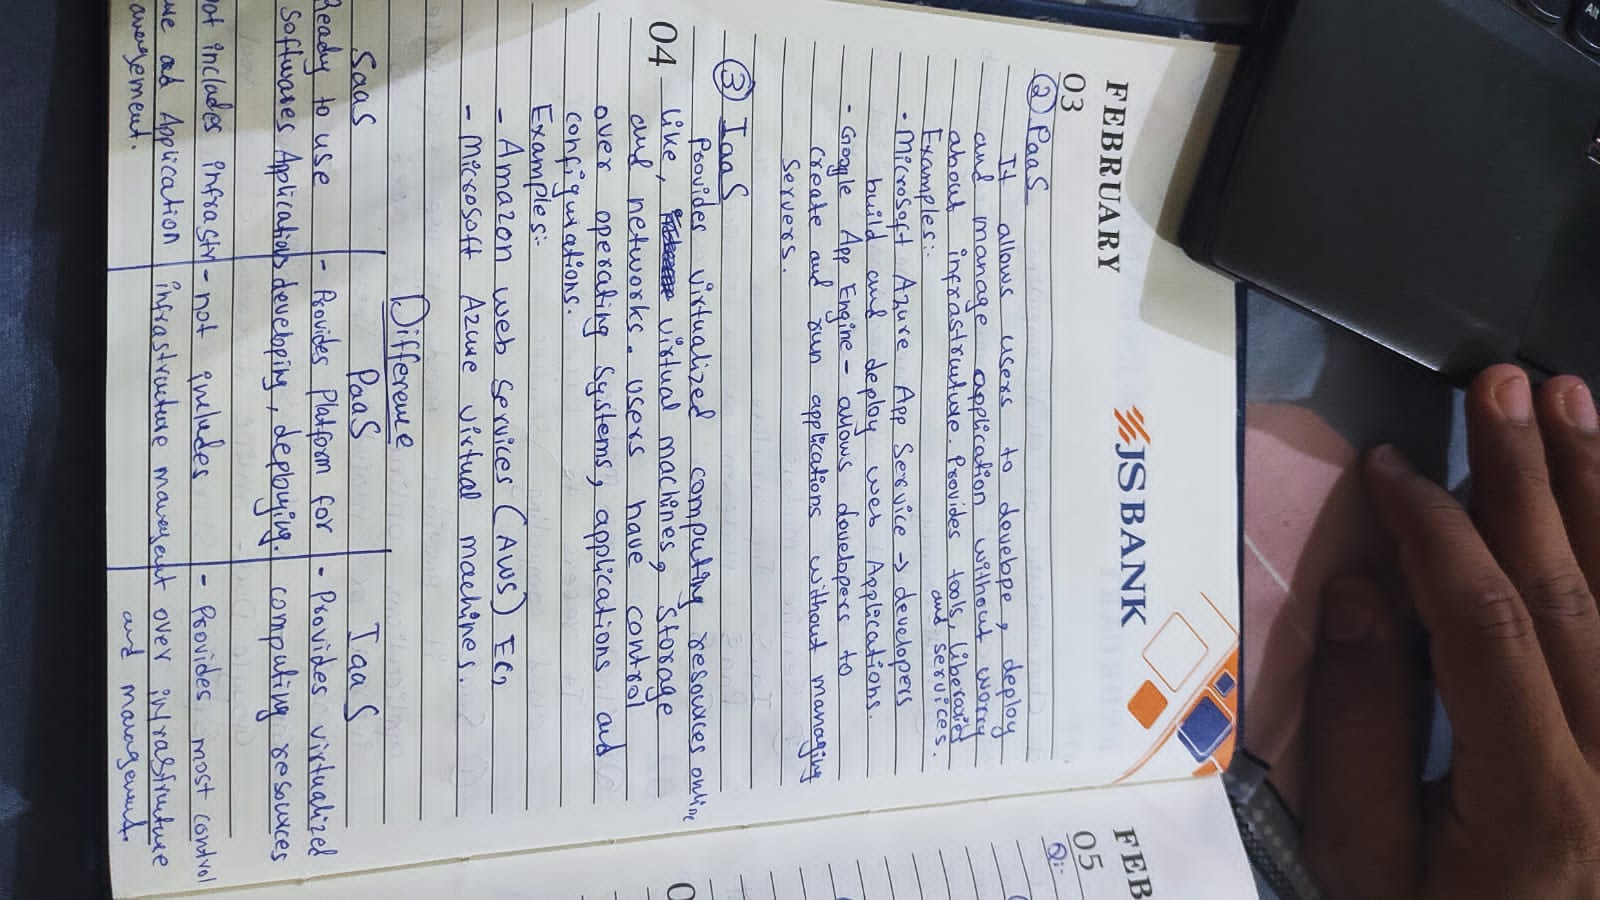 FEBRUARY JSBANK
03
② PaaS
It allows users to develope, deploy
and manage application without worry
about infrastructure. Provides tools, liberaries
and services.
Examples:-
- Microsoft Azure App Service → developers
build and deploy web Applications.
- Google App Engine - allows developers to
create and run applications without managing
servers.
③ IaaS
Provides virtualized computing resources online
04 like, virtual machines, storage
and networks. users have control
over operating systems, applications and
configurations.
Examples:-
- Amazon web services (AWS) EC2
- Microsoft Azure virtual machines.
Difference
SaaS PaaS IaaS
Ready to use - Provides Platform for - Provides virtualized
Softwares Applications developing, deploying. computing resources
not includes infrastr - not includes - Provides most control
Application infrastructure managent over infrastructure
and management.
FEB
05
Q:-